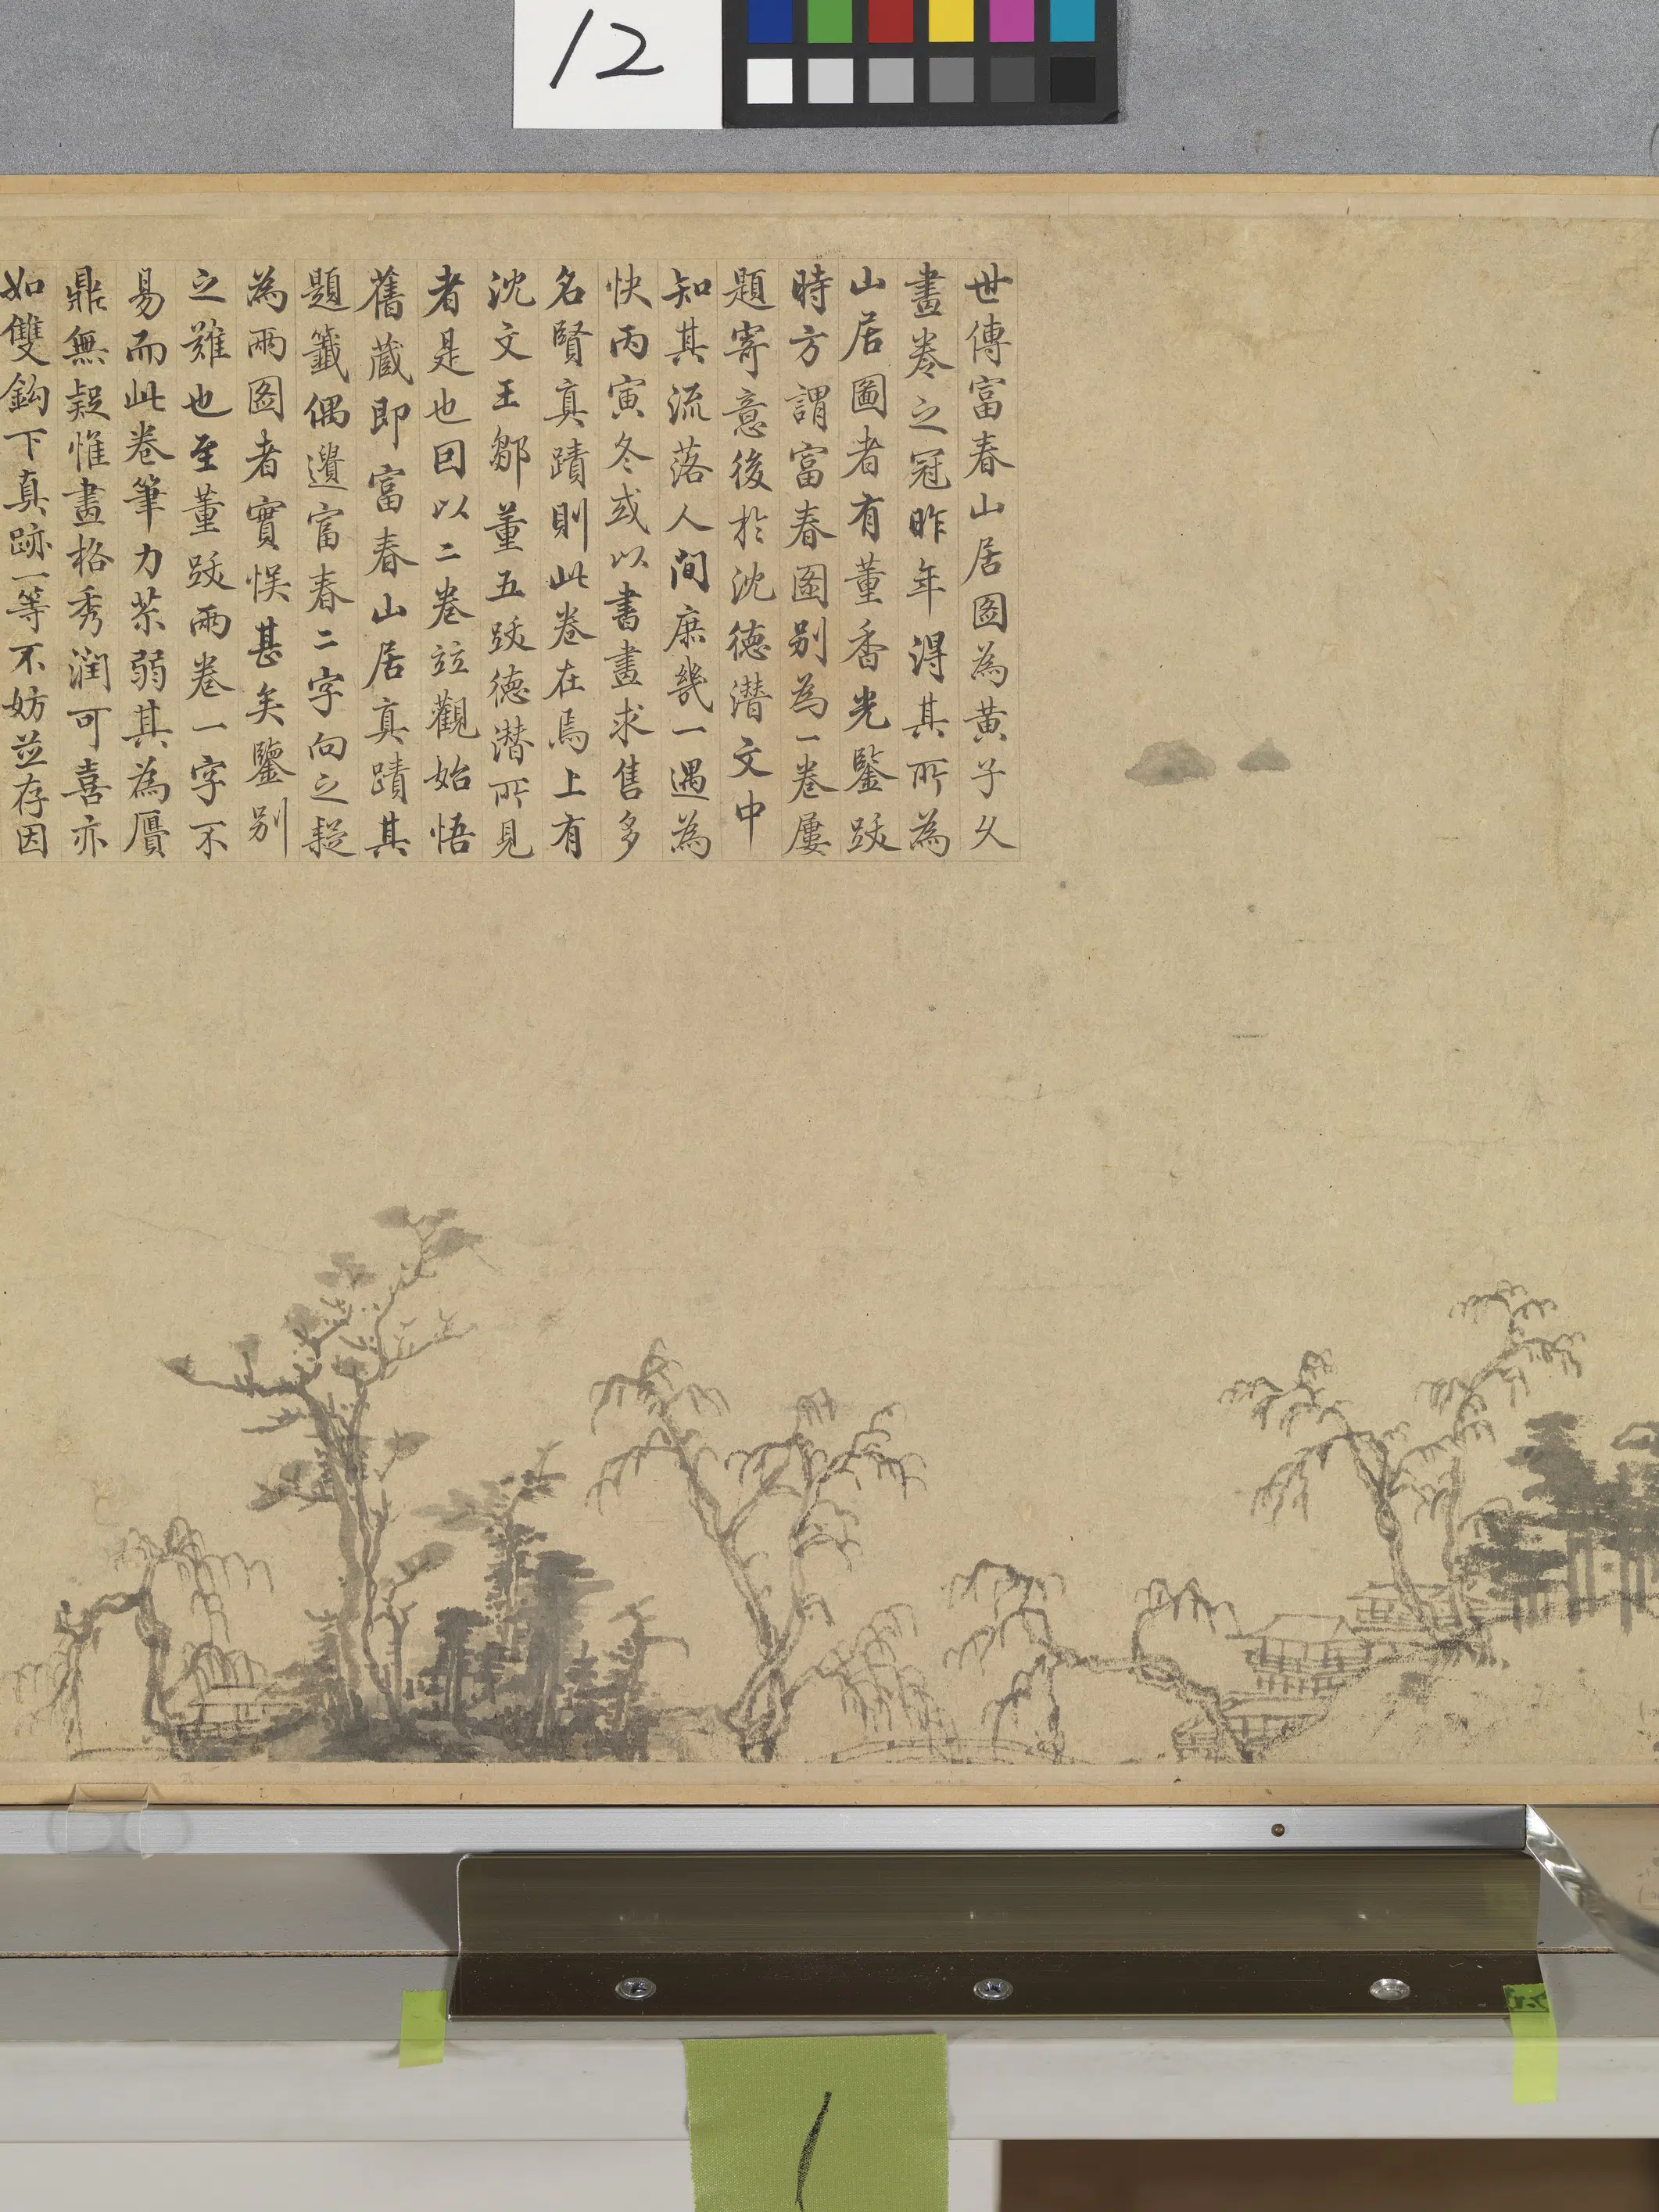 12
世傳富春山居圖為黃子久
畫卷之冠昨年得其所為
山居圖者有董香光鑒跋
時方謂富春圖別為一卷屢
題寄意後於沈德潛文中
知其流落人間庶幾一遇為
快丙寅冬或以書畫求售多
名賢真蹟則此卷在焉上有
沈文王鄒董五跋德潛所見
者是也因以二卷竝觀始悟
舊藏即富春山居真蹟其
題籤偶遺富春二字向之疑
為兩圖者實悞甚矣鑒別
之難也至董跋兩卷一字不
易而此卷筆力苶弱其為贗
鼎無疑惟畫格秀潤可喜亦
如雙鈎下真跡一等不妨並存因
1